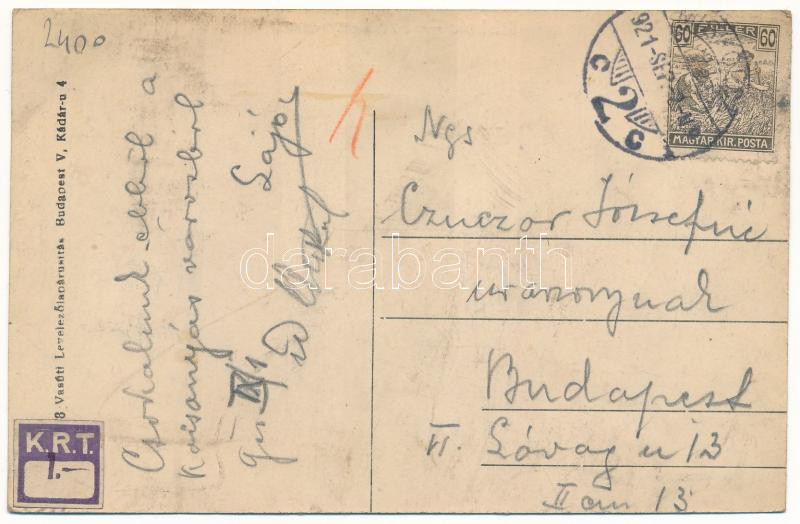 2400
8 Vasúti Levelezőlapárusítás Budapest V, Kádár-u 4
K.R.T.
1.-
Csókolunk ebből a
kácsonyás városból
IX/1
Lajos
60 FILLER 60
MAGYAR KIR. POSTA
921-SE
C 2 C
Ngs
Czuczor Józsefné
úrasszonynak
Budapest
VI. Lóvag u 13
II em 13
darabanth